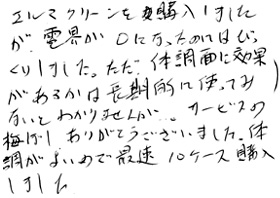 エルマクリーンを購入しました
が、電界が0になったのにはびっ
くりしました。ただ、体調面に効果
があるかは長期的に使ってみ
ないとわかりませんが… サービスの
梅ぼしありがとうございました。体
調がよいので最速10ケース購入
しました